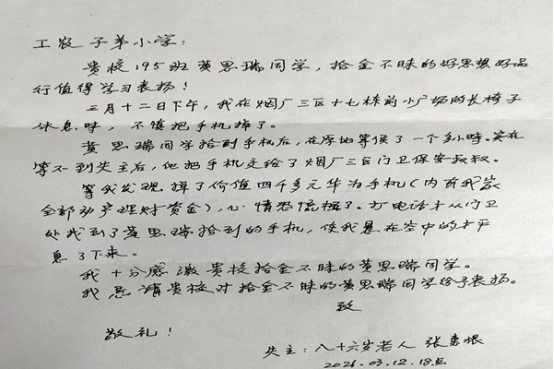 工农子弟小学：
贵校195班黄思瑞同学，拾金不昧的好思想好品
行值得学习表扬！
三月十二日下午，我在烟厂三区十七栋前小广场的长椅子
休息时，不慎把手机掉了。
黄思瑞同学拾到手机后，在原地等候了一个多小时。实在
等不到失主后，他把手机交给了烟厂三区门卫保安叔叔。
等我发现掉了价值四千多元华为手机（内有我家
全部动产理财资金），心情恐慌极了。打电话才从门卫
处找到了黄思瑞拾到的手机，使我悬在空中的才平
息了下来。
我十分感激贵校拾金不昧的黄思瑞同学。
我恳请贵校对拾金不昧的黄思瑞同学给予表扬。
致
敬礼！
失主：八十六岁老人 张
2026.03.12.18点